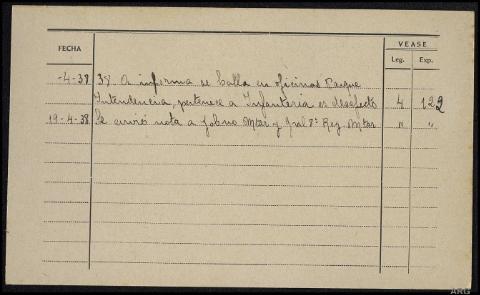 VEASE
FECHA Leg. Exp.
-4-38 38 A informa se halla en oficinas Parque
Intendencia, pertenece a Infantería es desafecto 4 122
19-4-38 Se envió nota a Gobno Mtar y Gral 8ª Reg. Mtar " "
ARG